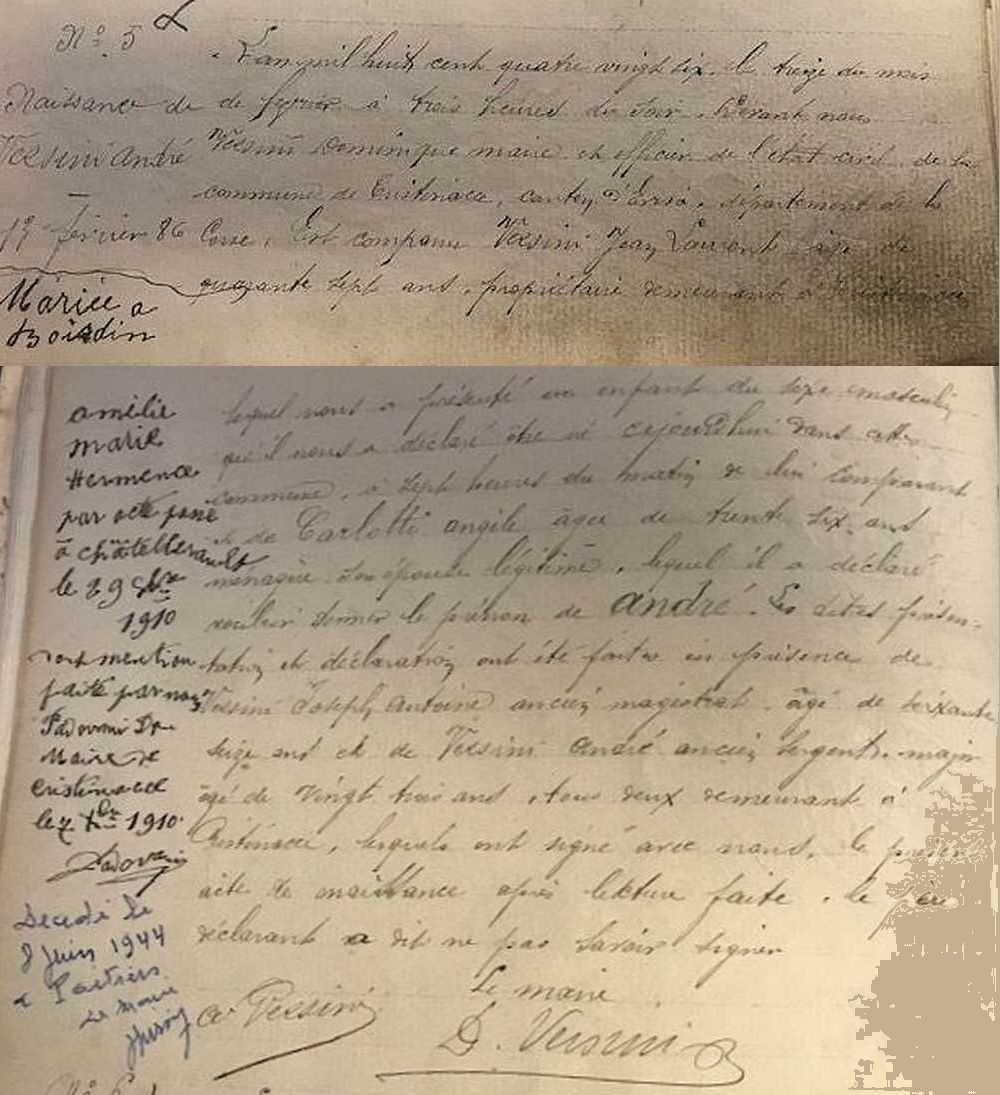 N° 5
Naissance de
Versini André
—
13 février 86
Mariée a
Boisdin
L'an mil huit cent quatre vingt six, le treize du mois
de février à trois heures du soir. Devant nous
Versini Dominique maire et officier de l'état civil de la
commune de Cristinacce, canton d'Evisa, département de la
Corse, Est comparu Versini Jean Laurent âgé de
quarante sept ans, propriétaire demeurant à Cristinacce
amélie
marie
Hermence
par acte passé
à châtellerault
le 29 9bre
1910
dont mention
faite par nous
Padovani Dque
Maire de
Cristinacce
le 7 Xbre 1910
Padovani
Decedé le
8 Juin 1944
a Poitiers
Le Maire
lequel nous a présenté un enfant du sexe masculin
qu'il nous a déclaré être né cejourd'hui dans cette
commune, à sept heures du matin de lui comparant
et de Carlotti angèle âgée de trente six ans
ménagère son épouse légitime, lequel il a déclaré
vouloir donner le prénom de andré. Les dites présen-
tation et déclaration ont été faites en présence de
Versini Joseph Antoine ancien magistrat âgé de soixante
seize ans et de Versini André ancien sergent-major
âgé de vingt trois ans, tous deux demeurant à
Cristinacce, lesquels ont signé avec nous, le présent
acte de naissance après lecture faite. le père
déclarant a dit ne pas savoir signer
Le maire
A Versini
D. Versini
N° 6